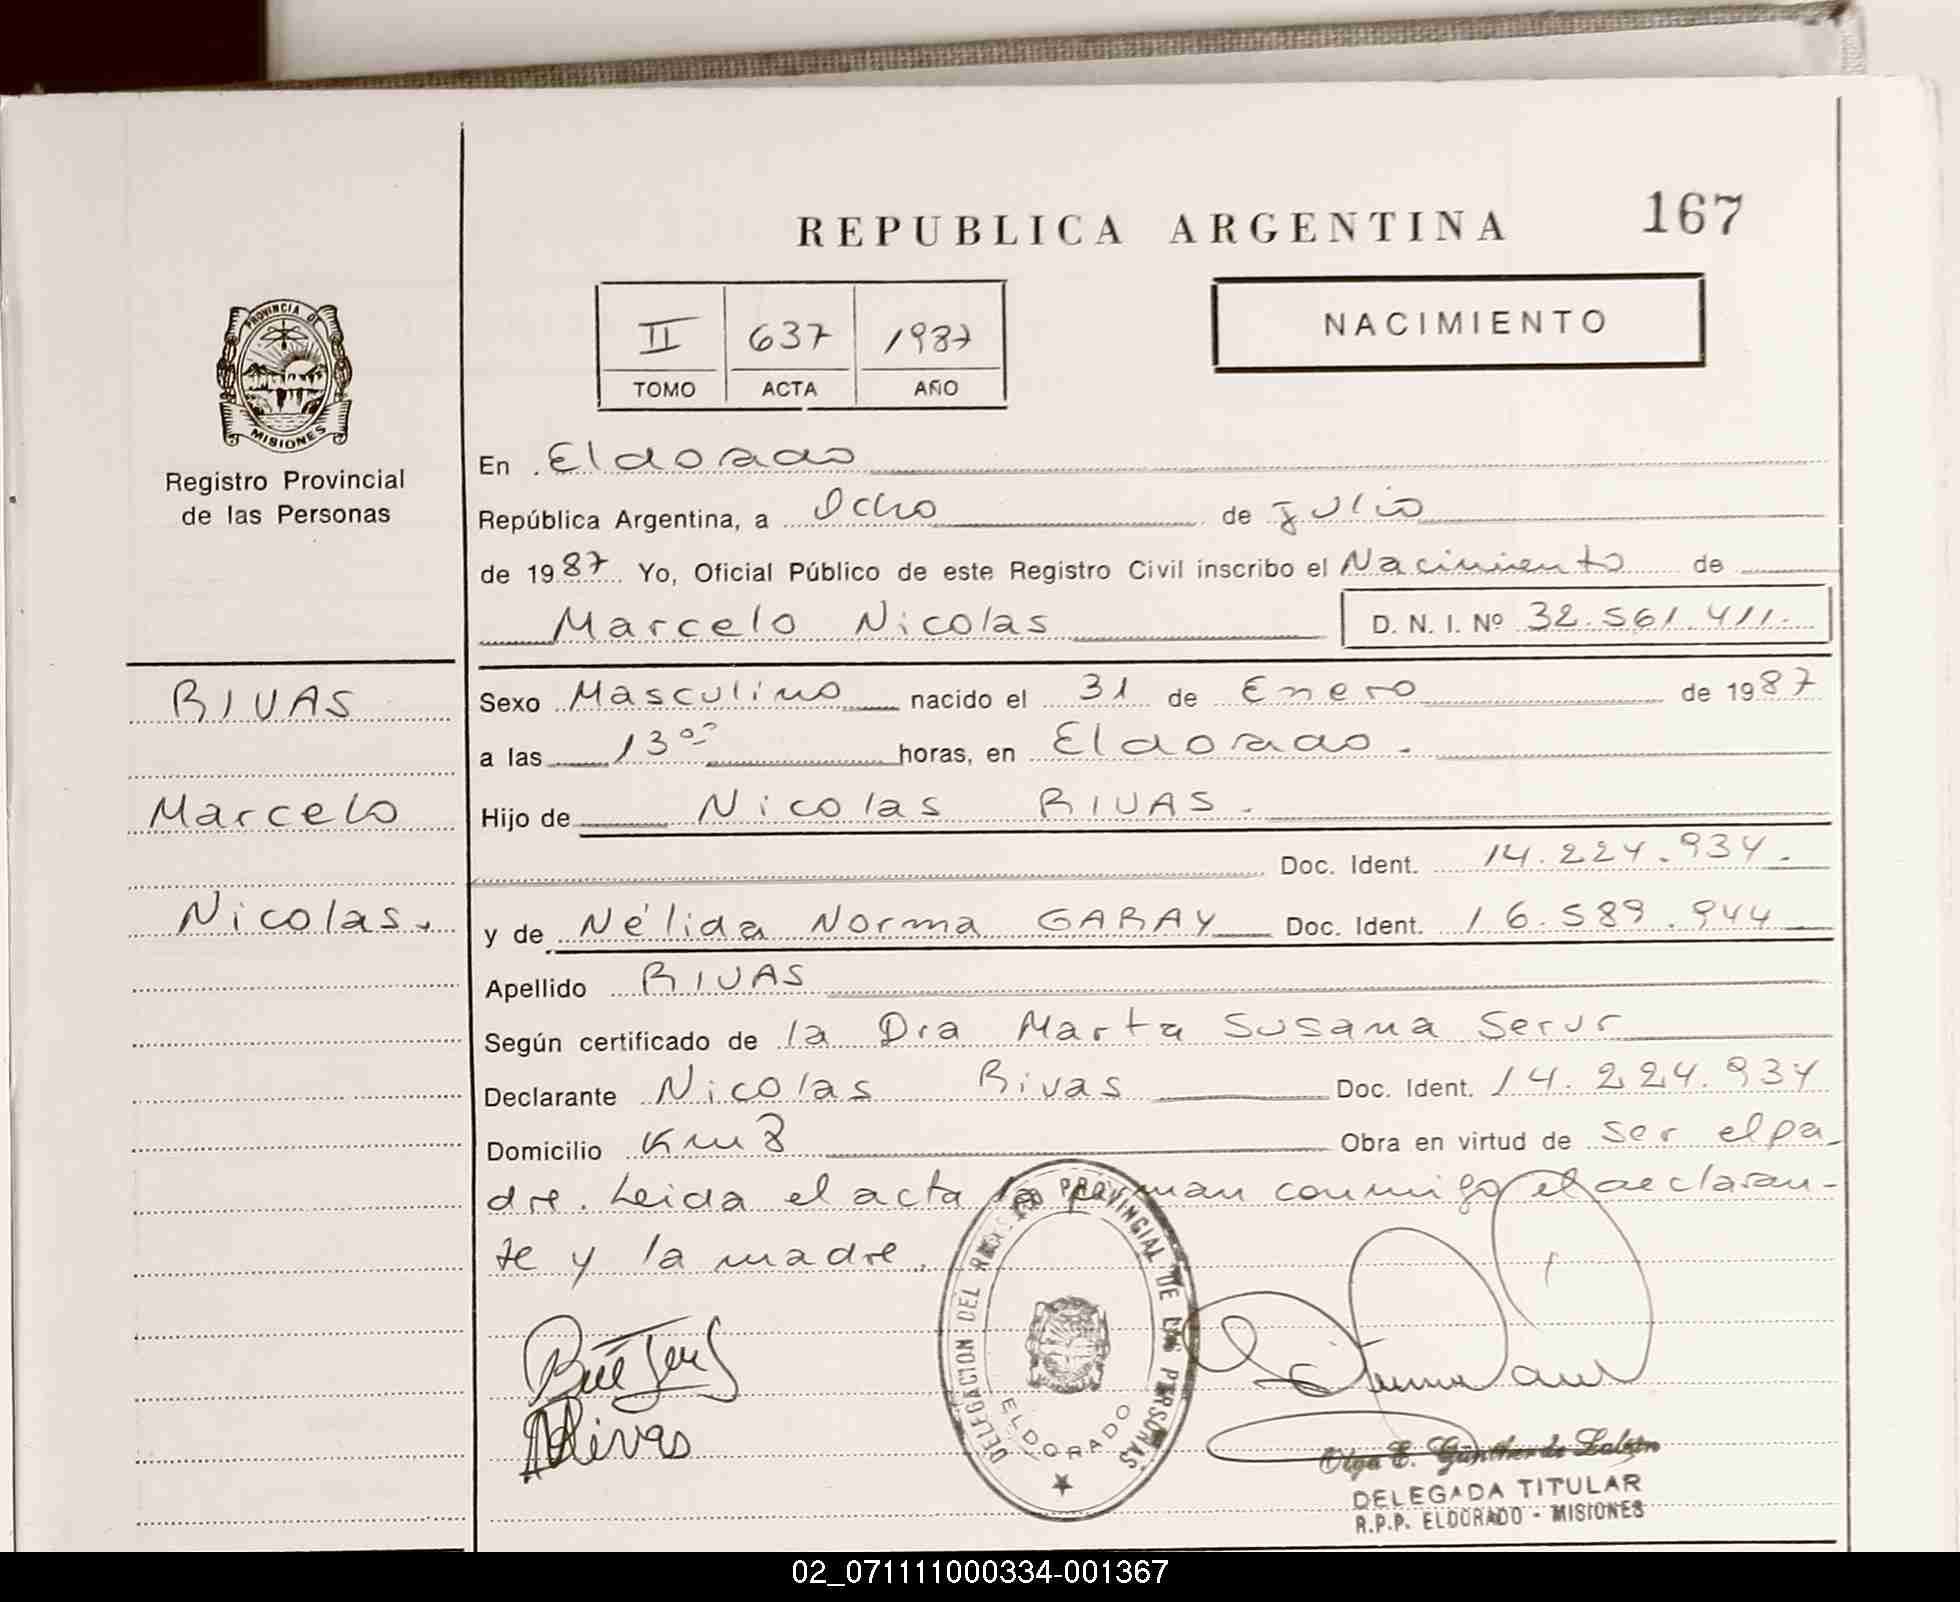 REPUBLICA ARGENTINA 167
II 637 1987
TOMO ACTA AÑO
NACIMIENTO
PROVINCIA DE
MISIONES
Registro Provincial
de las Personas
RIVAS
Marcelo
Nicolas.
En Eldorado
República Argentina, a Ocho de Julio
de 1987 Yo, Oficial Público de este Registro Civil inscribo el Nacimiento de
Marcelo Nicolas D. N. I. Nº 32.561.411.
Sexo Masculino nacido el 31 de Enero de 1987
a las 13 horas, en Eldorado.
Hijo de Nicolas RIVAS.
Doc. Ident. 14.224.934.
y de Nélida Norma GARAY Doc. Ident. 16.589.944
Apellido RIVAS
Según certificado de la Dra Marta Susana Serur
Declarante Nicolas Rivas Doc. Ident. 14.224.934
Domicilio Km Obra en virtud de ser el pa-
dre. Leida el acta la firman conmigo el declaran-
te y la madre.
DELEGACION DEL REGISTRO PROVINCIAL DE LAS PERSONAS
ELDORADO
Rivas
Olga E. Günther de
DELEGADA TITULAR
R.P.P. ELDORADO - MISIONES
02_071111000334-001367